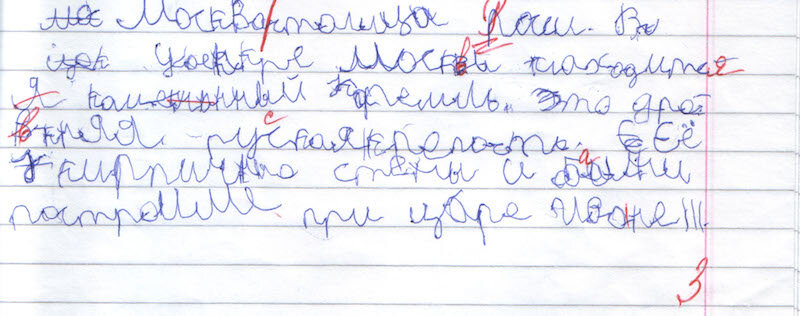 Москва столица Росии. В
центре Москвы находится
каменный Кремль. Это древ
няя руская крепость. Её
кирпично стены и башни
построили при царе Иване III.
3